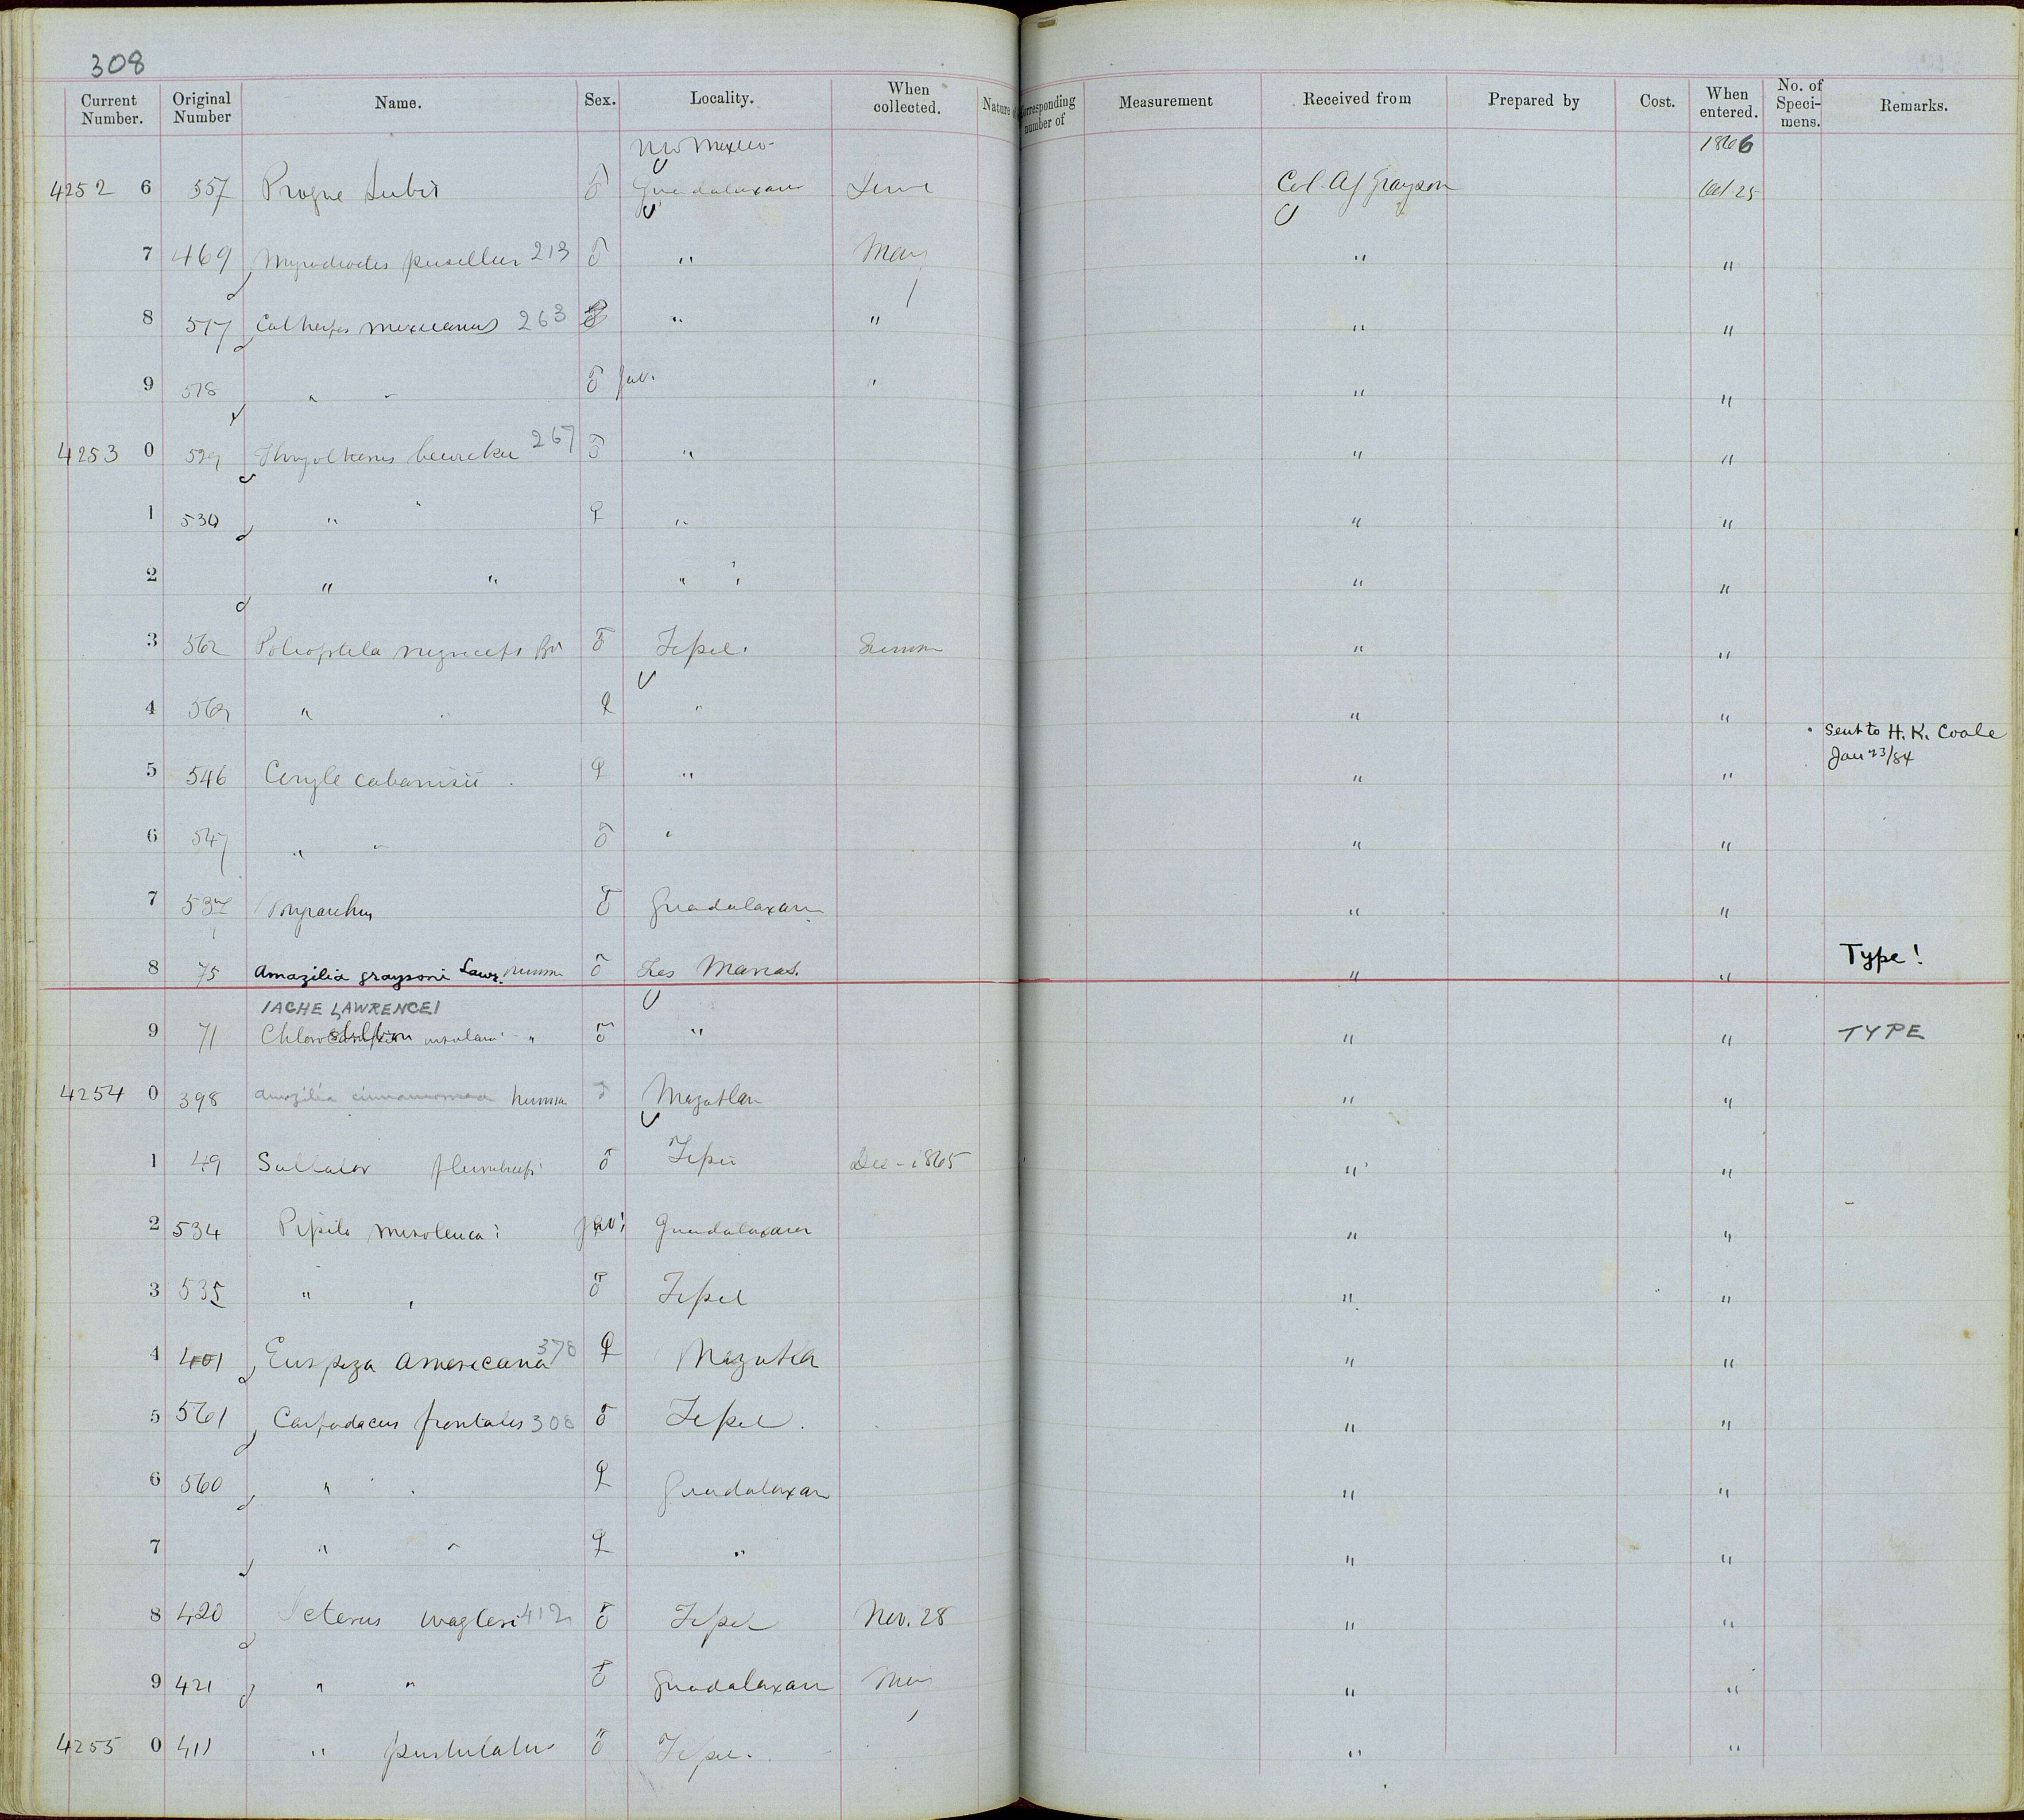 308
Current Number. Original Number Name. Sex. Locality. When collected. Nature of Corresponding number of Measurement Received from Prepared by Cost. When entered. No. of Speci- mens. Remarks.
New Mexico 1866
4252 6 357 Progne subis ♂ Guadalaxara June Col. A J Grayson Oct 25
7 469 Myiodioctes pusillus 213 ♂ " May " "
8 517 Catherpes mexicanus 263 ♂ " " " "
9 518 " " ♂ juv. " " "
4253 0 529 Thryothorus bewickii 267 ♂ " " "
1 530 " " ♀ " " "
2 " " " " " "
3 562 Polioptila nigriceps Bd ♂ Tepic. Summer " "
4 563 " " ♀ " " "
Sent to H. K. Coale
5 546 Ceryle cabanisii ♀ " " " Jan 23/84
6 547 " " ♂ " " "
7 537 Myiarchus ♂ Guadalaxara " "
8 75 Amazilia graysoni Lawr. ♂ Tres Marias. " " Type!
IACHE LAWRENCEI
9 71 Chlorostilbon insularis " ♂ " " " TYPE
4254 0 398 Amazilia cinnamomea ♂ Mazatlan " "
1 49 Saltator plumbiceps ♂ Tepic Dec - 1865 " "
2 534 Pipilo mesoleuca juv. Guadalaxara " "
3 535 " " ♂ Tepic " "
4 401 Euspiza americana 378 ♀ Mazatlan " "
5 561 Carpodacus frontalis 308 ♂ Tepic. " "
6 560 " " ♀ Guadalaxara " "
7 " " ♀ " " "
8 420 Icterus wagleri 412 ♂ Tepic Nov. 28 " "
9 421 " " ♂ Guadalaxara May " "
4255 0 411 " pustulatus ♂ Tepic. " "